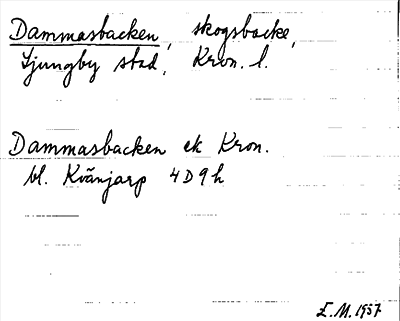 Dammasbacken, skogsbacke,
Ljungby stad, Kron. l.
Dammasbacken ek Kron.
bl. Kvänjarp 4D9h
E.M. 1957